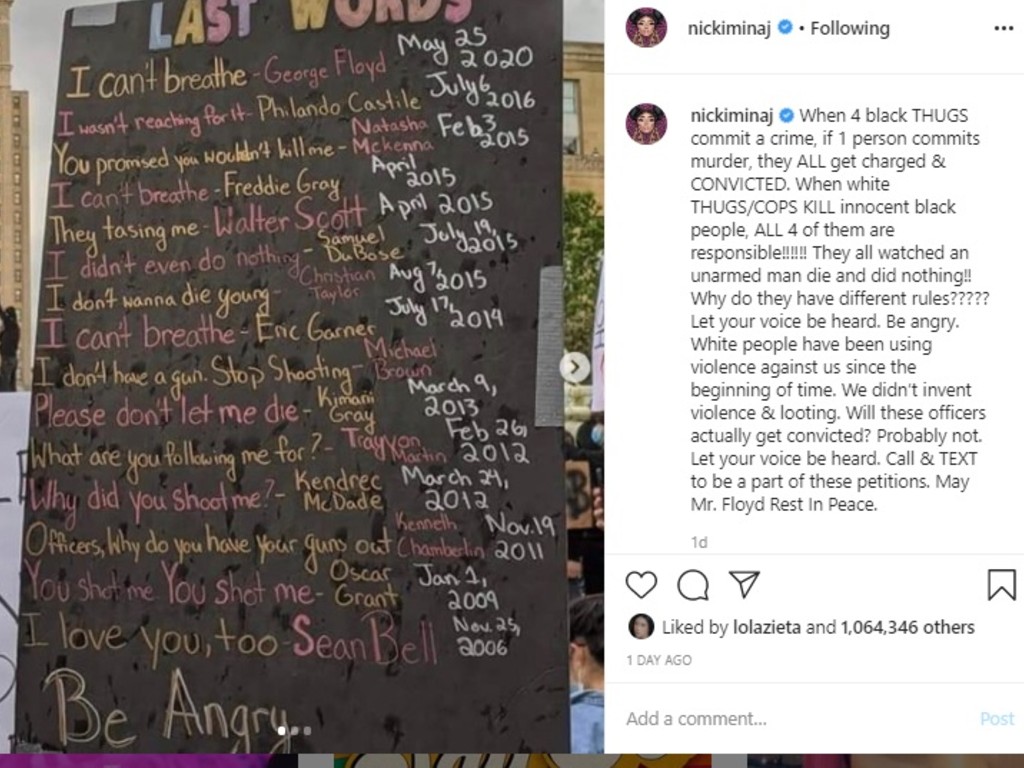 LAST WORDS
I can't breathe - George Floyd May 25 2020
I wasn't reaching for it - Philando Castile July 6 2016
You promised you wouldn't kill me - Natasha Mckenna Feb 3 2015
I can't breathe - Freddie Gray April 2015
They tasing me - Walter Scott April 2015
I didn't even do nothing - Samuel DuBose July 19, 2015
I don't wanna die young - Christian Taylor Aug 7, 2015
I can't breathe - Eric Garner July 17, 2014
I don't have a gun. Stop Shooting - Michael Brown
Please don't let me die - Kimani Gray March 9, 2013
What are you following me for? - Trayvon Martin Feb 26, 2012
Why did you shoot me? - Kendrec McDade March 24, 2012
Officers, Why do you have your guns out Kenneth Chamberlin Nov. 19 2011
You shot me. You shot me - Oscar Grant Jan 1, 2009
I love you, too - Sean Bell Nov. 25, 2006
Be Angry
nickiminaj • Following
nickiminaj When 4 black THUGS
commit a crime, if 1 person commits
murder, they ALL get charged &
CONVICTED. When white
THUGS/COPS KILL innocent black
people, ALL 4 of them are
responsible!!!!!! They all watched an
unarmed man die and did nothing!!
Why do they have different rules?????
Let your voice be heard. Be angry.
White people have been using
violence against us since the
beginning of time. We didn't invent
violence & looting. Will these officers
actually get convicted? Probably not.
Let your voice be heard. Call & TEXT
to be a part of these petitions. May
Mr. Floyd Rest In Peace.
1d
Liked by lolazieta and 1,064,346 others
1 DAY AGO
Add a comment... Post